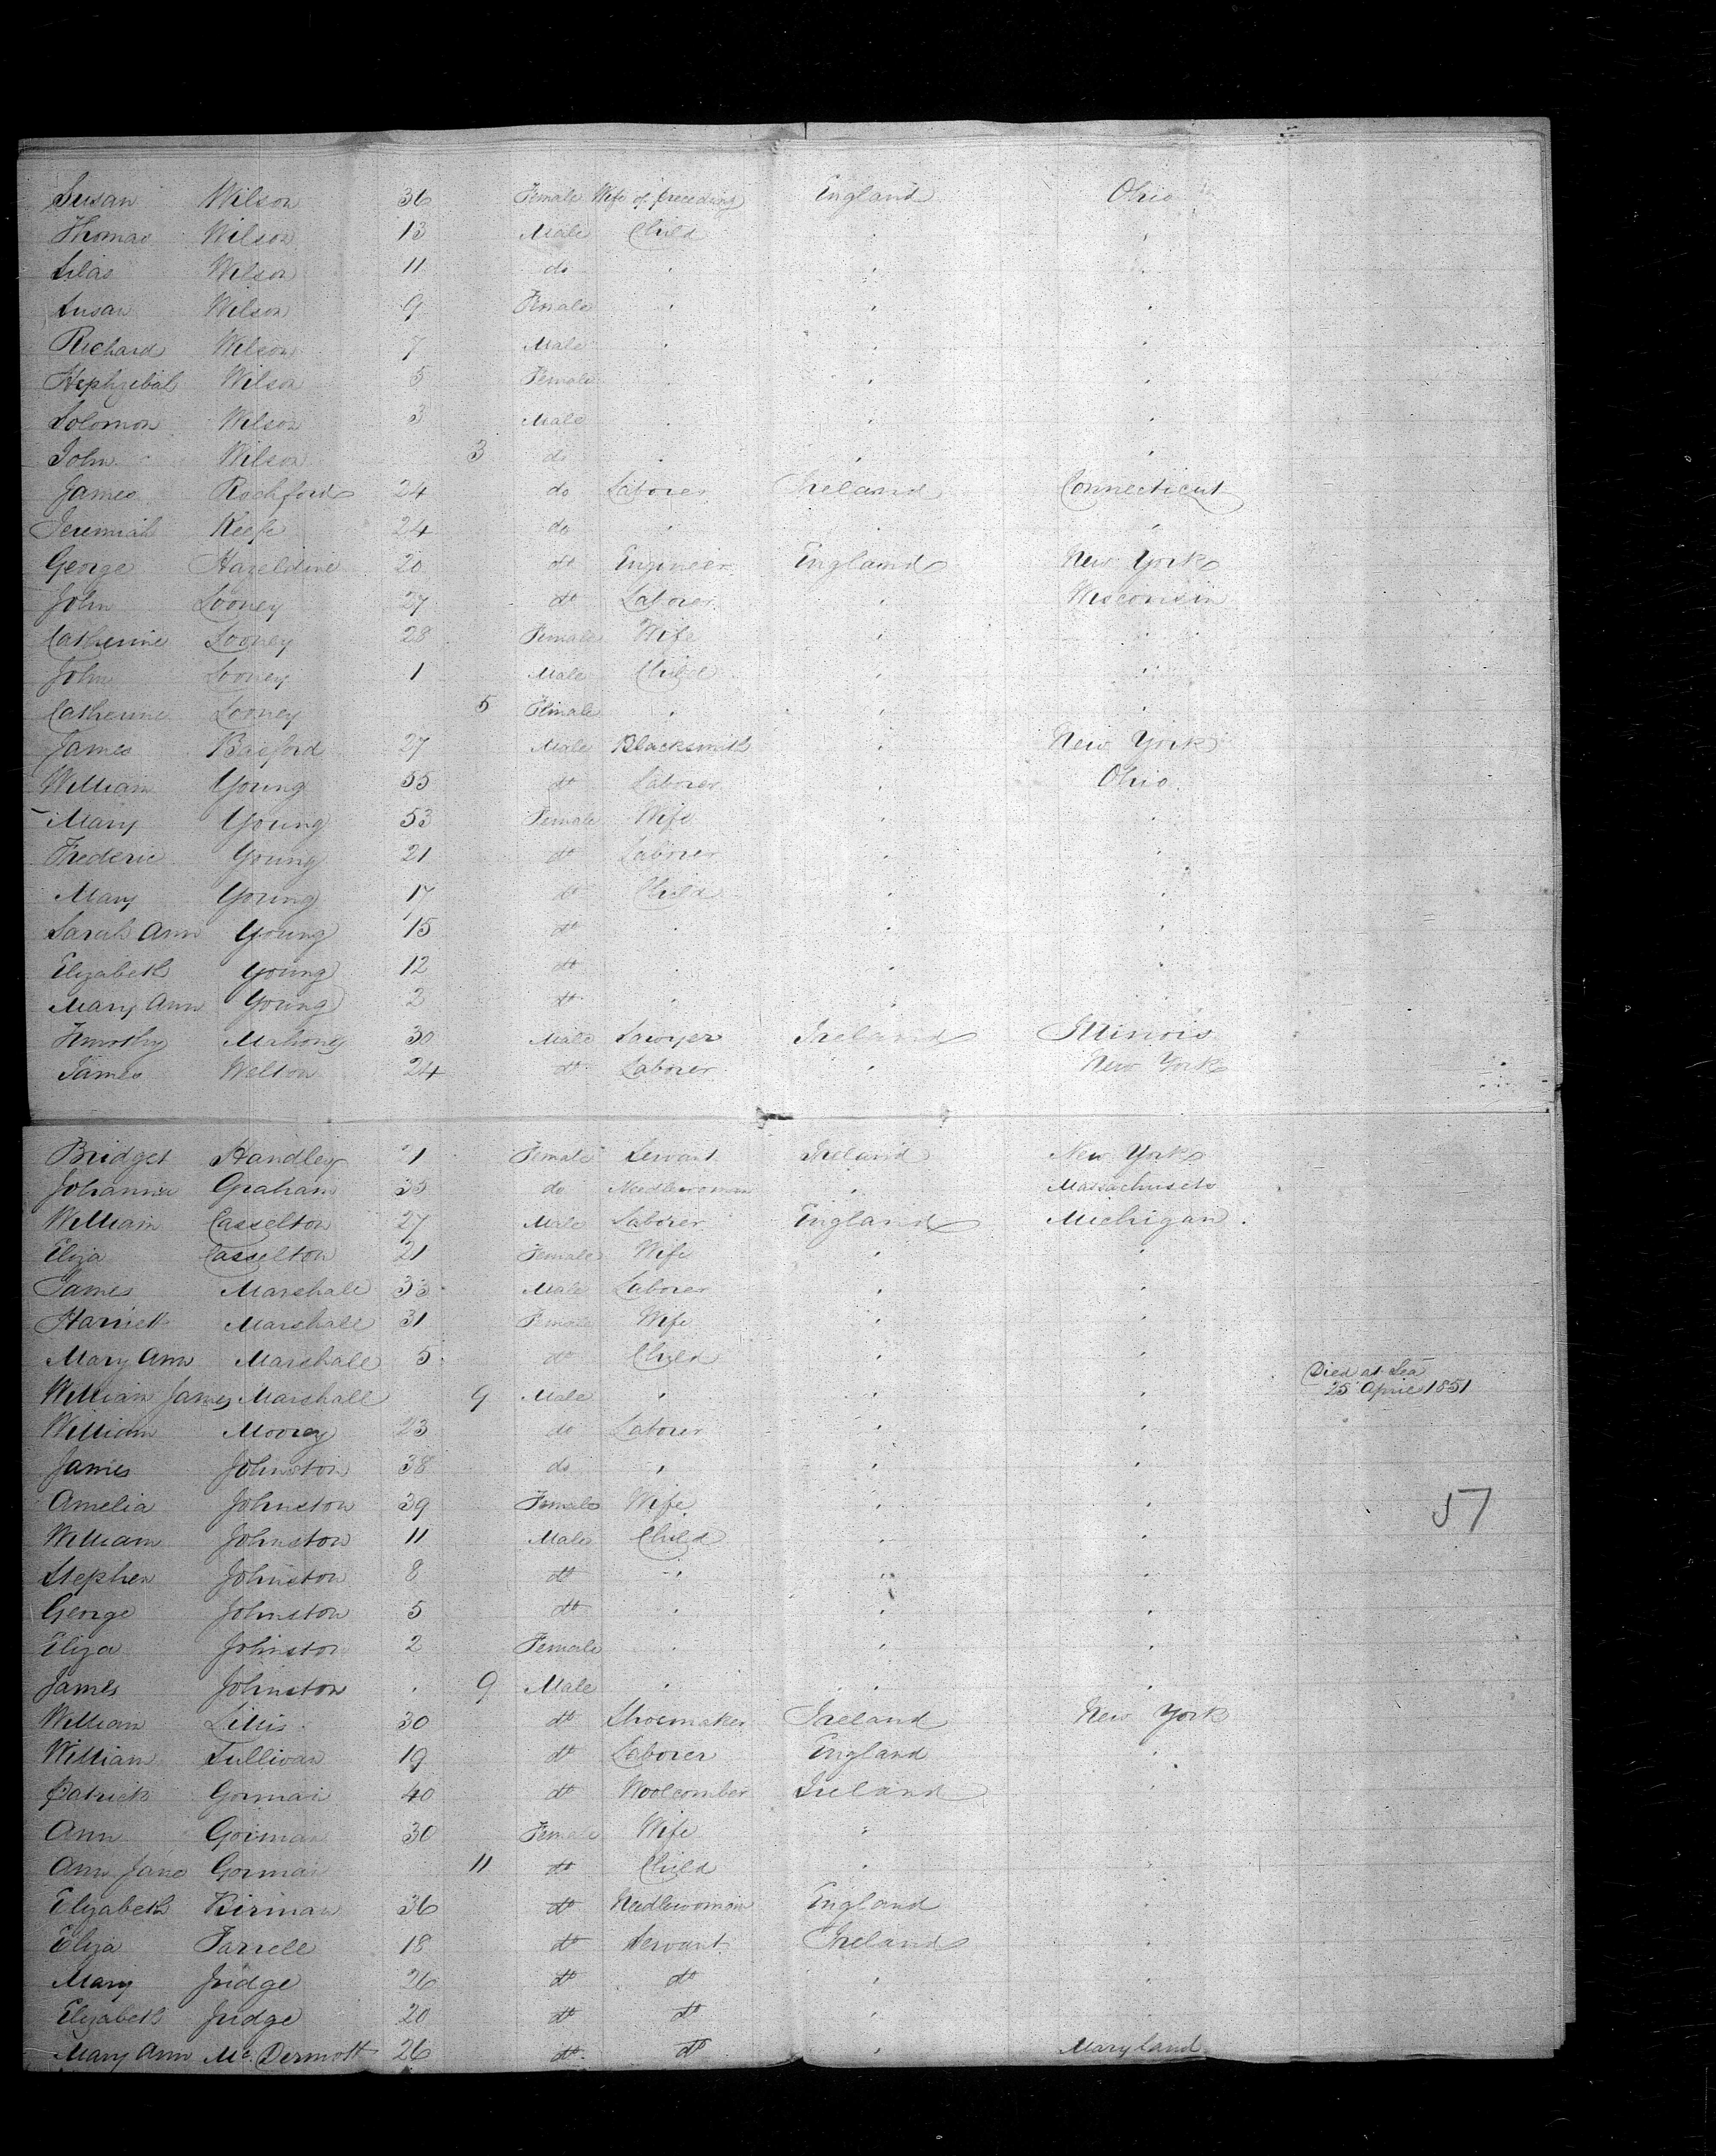 Susan Wilson 36 Female Wife of preceding England Ohio
Thomas Wilson 13 Male Child " "
Silas Wilson 11 do " " "
Susan Wilson 9 Female " " "
Richard Wilson 7 Male " " "
Hephzibah Wilson 5 Female " " "
Solomon Wilson 3 Male " " "
John Wilson 3 do " " "
James Rochford 24 do Laborer Ireland Connecticut
Jeremiah Keefe 24 do " " "
George Hazeldine 20 do Engineer England New York
John Looney 27 do Laborer " Wisconsin
Catherine Looney 28 Female Wife " "
John Looney 1 Male Child " "
Catherine Looney 5 Female " " "
James Basford 27 Male Blacksmith " New York
William Young 55 do Laborer " Ohio
Mary Young 53 Female Wife " "
Frederic Young 21 do Laborer " "
Mary Young 17 do Child " "
Sarah Ann Young 15 do " " "
Elizabeth Young 12 do " " "
Mary Ann Young 2 do " " "
Timothy Mahony 30 Male Sawyer Ireland Illinois
James Welton 24 do Laborer " New York
Bridget Handley 21 Female Servant Ireland New York
Johanna Graham 35 do Needlewoman " Massachusets
William Casselton 27 Male Laborer England Michigan
Eliza Casselton 21 Female Wife " "
James Marshall 33 Male Laborer " "
Harriett Marshall 31 Female Wife " "
Mary Ann Marshall 5 do Child " "
William James Marshall 9 Male " " " Died at Sea 25 April 1851
William Moorey 23 do Laborer " "
James Johnston 38 do " " "
Amelia Johnston 39 Female Wife " "
57
William Johnston 11 Male Child " "
Stephen Johnston 8 do " " "
George Johnston 5 do " " "
Eliza Johnston 2 Female " " "
James Johnston 9 Male " " "
William Lillis 30 do Shoemaker Ireland New York
William Sullivan 19 do Laborer England "
Patrick Gorman 40 do Woolcomber Ireland "
Ann Gorman 30 Female Wife " "
Ann Jane Gorman 11 do Child " "
Elizabeth Kirman 36 do Needlewoman England "
Eliza Farrell 18 do Servant Ireland "
Mary Judge 26 do do " "
Elizabeth Judge 20 do do " "
Mary Ann McDermott 26 do do " Maryland